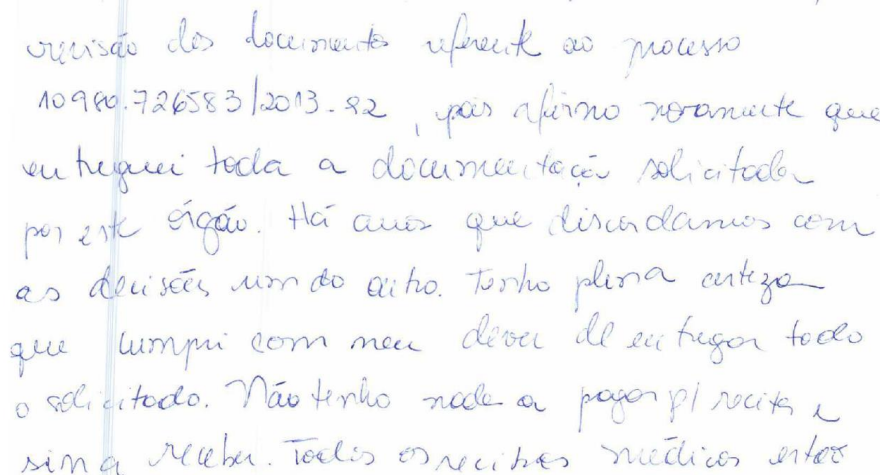 revisão dos documentos referente ao processo
10980.726583/2013-82, pois afirmo novamente que
entreguei toda a documentação solicitada
por este órgão. Há anos que discordamos com
as decisões um do outro. Tenho plena certeza
que cumpri com meu dever de entregar todo
o solicitado. Não tenho nada a pagar p/ receita e
sim a receber. Todos os recibos médicos estão